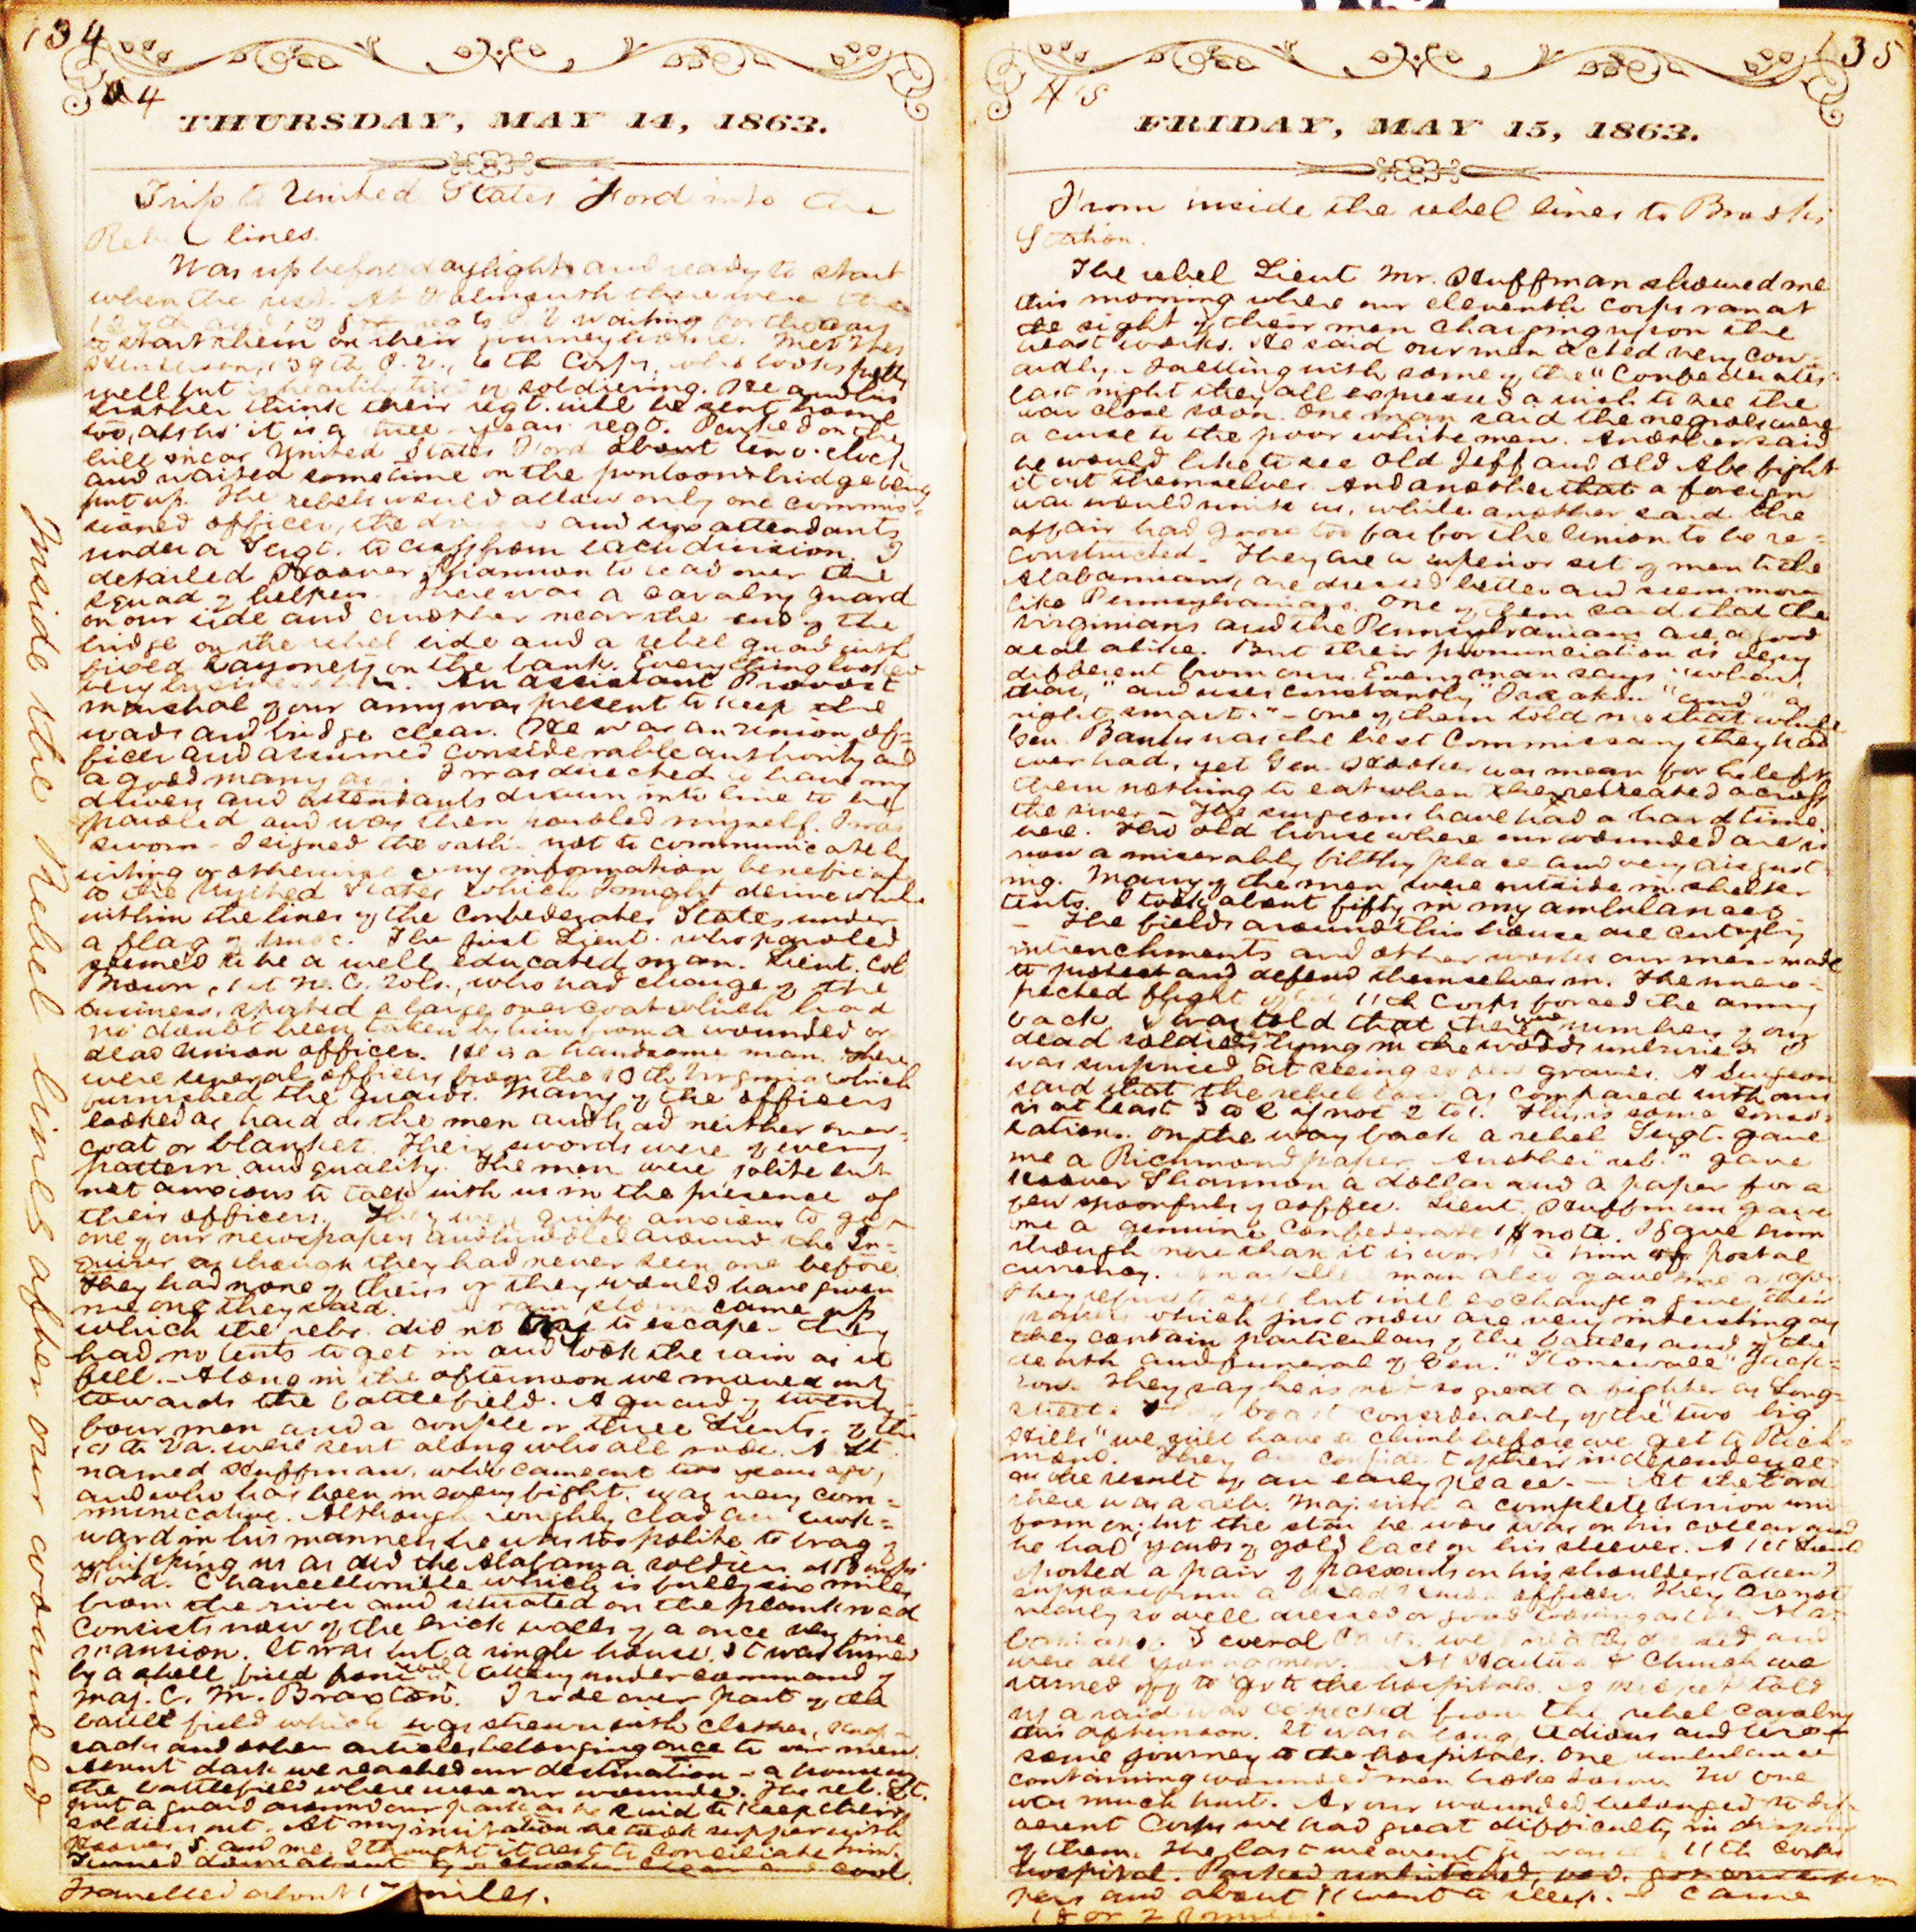 134
4
THURSDAY, MAY 14, 1863.
Trip to United States Ford into the
Rebel lines.
Was up before daylight and ready to start
when the rest. At Falmouth there were the
waiting for the cars
to start them on their journey home. Met
139th P.V., 6th Corps, who looks
well but is heartily tired of soldiering. He and his
brother think their regt. will be sent home
too, altho' it is a three years regt. Parked on the
hill near United States Ford about ten o'clock
and waited sometime on the pontoon bridge being
put up. The rebels would allow only one commis-
sioned officer, the drivers and two attendants
under a Sergt. to cross from each division. I
detailed Hoover Shannon to lead over the
squad of helpers. There was a cavalry guard
on our side and another near the end of the
bridge on the rebel side and a rebel guard with
fixed bayonets on the bank. Everything looked
very. An assistant Provost
marshal of our army was present to keep the
roads and bridge clear. He was an union of-
ficer and assumed considerable authority and
a good many. I was directed to have my
drivers and attendants drawn into line to be
paroled and was then paroled myself. I was
sworn - I signed the oath - not to communicate by
writing or otherwise any information beneficial
to the United States which I might derive while
within the lines of the Confederates States under
a flag of truce. The first Lieut. who paroled
seemed to be a well educated man. Lieut. Col
Brown, 1st N. C. Vols., who had charge of the
business, sported a large overcoat which had
no doubt been taken by him from a wounded or
dead Union officer. He is a handsome man. There
were several officers from the 10th Virginia which
furnished the guards. Many of the officers
looked as hard as the men and had neither over-
coat or blanket. Their swords were of every
pattern and quality. The men were polite but
not anxious to talk with us in the presence of
their officers. They were quite anxious to get
one of our newspapers and huddled around the In-
quirer as though they had never seen one before
They had none of theirs or they would have given
me one they said. A rain storm came up
which the rebs. did not try to escape. They
had no tents to get in and took the rain as it
fell. - Along in the afternoon we moved out
towards the battlefield. A guard of twenty-
four men and a couple or three Lieuts. of the
10th Va. were sent along who all rode. A Lt.
named Huffman, who came out two years ago,
and who has been in every fight, was very com-
municative. Although roughly clad and awk-
ward in his manners he was too polite to brag of
whipping us as did the Alabama soldiers at Banks'
Ford. Chancellorville which is fully six miles
from the river and situated on the plank road
consists now of the brick walls of a once very fine
mansion. It was but a single house. It was burned
by a shell fired from battery under command of
Maj. C. M. Braxton. I rode over part of the
battle field which was strewn with clothes, knap-
sacks and other articles belonging once to our men.
About dark we reached our destination - a house on
the battlefield where were our wounded. The reb. Lt.
put a guard around our park as he said to keep their
soldiers out. At my invitation he took supper with
Hoover S. and me. I thought it best to conciliate him.
Turned down about o'clock. Clear and cool.
Travelled about 17 miles.
Inside the Rebel lines after our wounded
135
45
FRIDAY, MAY 15, 1863.
From inside the rebel lines to Brooks
Station.
The rebel Lieut Mr. Huffman showed me
this morning where our eleventh corps ran at
the sight of their men charging upon the
breast works. He said our men acted very cow-
ardly. Talking with some of the "Confederates"
last night they all expressed a wish to see the
war close soon. One man said the negroes were
a curse to the poor white men. Another said
he would like to see Old Jeff and Old Abe fight
it out themselves. And another that a foreign
war would unite us, while another said the
affair had gone too far for the Union to be re-
constructed. They are a superior set of men to the
Alabamians, are dressed better and seem more
like Pennsylvanians. One of them said that the
Virginians and the Pennsylvanians are a good
deal alike. But their pronunciation is very
different from ours. Every man says
and uses constantly and "a
right smart." - One of them told me that while
Gen. Banks was the best Commissary they had
ever had, yet Gen. Hooker was mean for he left
them nothing to eat when they retreated across
the river - The surgeons have had a hard time
here. The old house where our wounded are is
now a miserably filthy place and very disgust-
ing. Many of the men were outside in shelter
tents. I took about fifty in my ambulances.
- The fields around this house are cut up by
intrenchments and other works our men made
to protect and defend themselves in. The unex-
pected flight of the 11th Corps forced the army
back. I was told that there were numbers of our
dead soldiers lying in the woods unburied. I
was surprised at seeing so few graves. A Surgeon
said that the rebel loss as compared with ours
is at least 3 to 2 if not 2 to 1. This is some conso-
lation. On the way back a rebel Sergt. gave
me a Richmond paper. Another "reb." gave
Hoover Shannon a dollar and a paper for a
few spoonfuls of coffee. Lieut. Huffman gave
me a genuine Confederate 1$ note. I gave him
though more than it is worth to him of postal
currency. man also gave me a
They refuse to sell but will exchange or give their
papers which just now are very interesting as
they contain particulars of the battles and of the
death and funeral of Gen. "Stonewall" Jack-
son. They say he is not so great a fighter as Long-
street. They boast considerably of the "two big
Hills" we will have to climb before we get to Rich-
mond. They are confident of their independence
as the result of an early peace. - At the Ford
there was a reb. Maj. with a complete Union uni-
form on; but the star he wore was on his collar and
he had yards of gold lace on his sleeves. A 1st Lieut.
sported a pair of passants on his shoulders taken I
suppose from a dead Union officer. They are not
nearly so well dressed or good looking as the Ala-
bamians. Several Capts. were neatly dressed and
were all young men. At Church we
turned off to go to the hospitals. A picket told
us a raid was expected from the rebel cavalry
this afternoon. It was a long, tedious and tire-
some journey to the hospitals. One ambulance
containing wounded men broke down. No one
was much hurt. As our wounded belonged to dif-
ferent Corps we had great difficulty in disposing
of them. The last we went to was the 11th Corps
hospital. Parked unhitched, fed, got our
pers and about 11 went to sleep. - Came
18 or 20 miles.